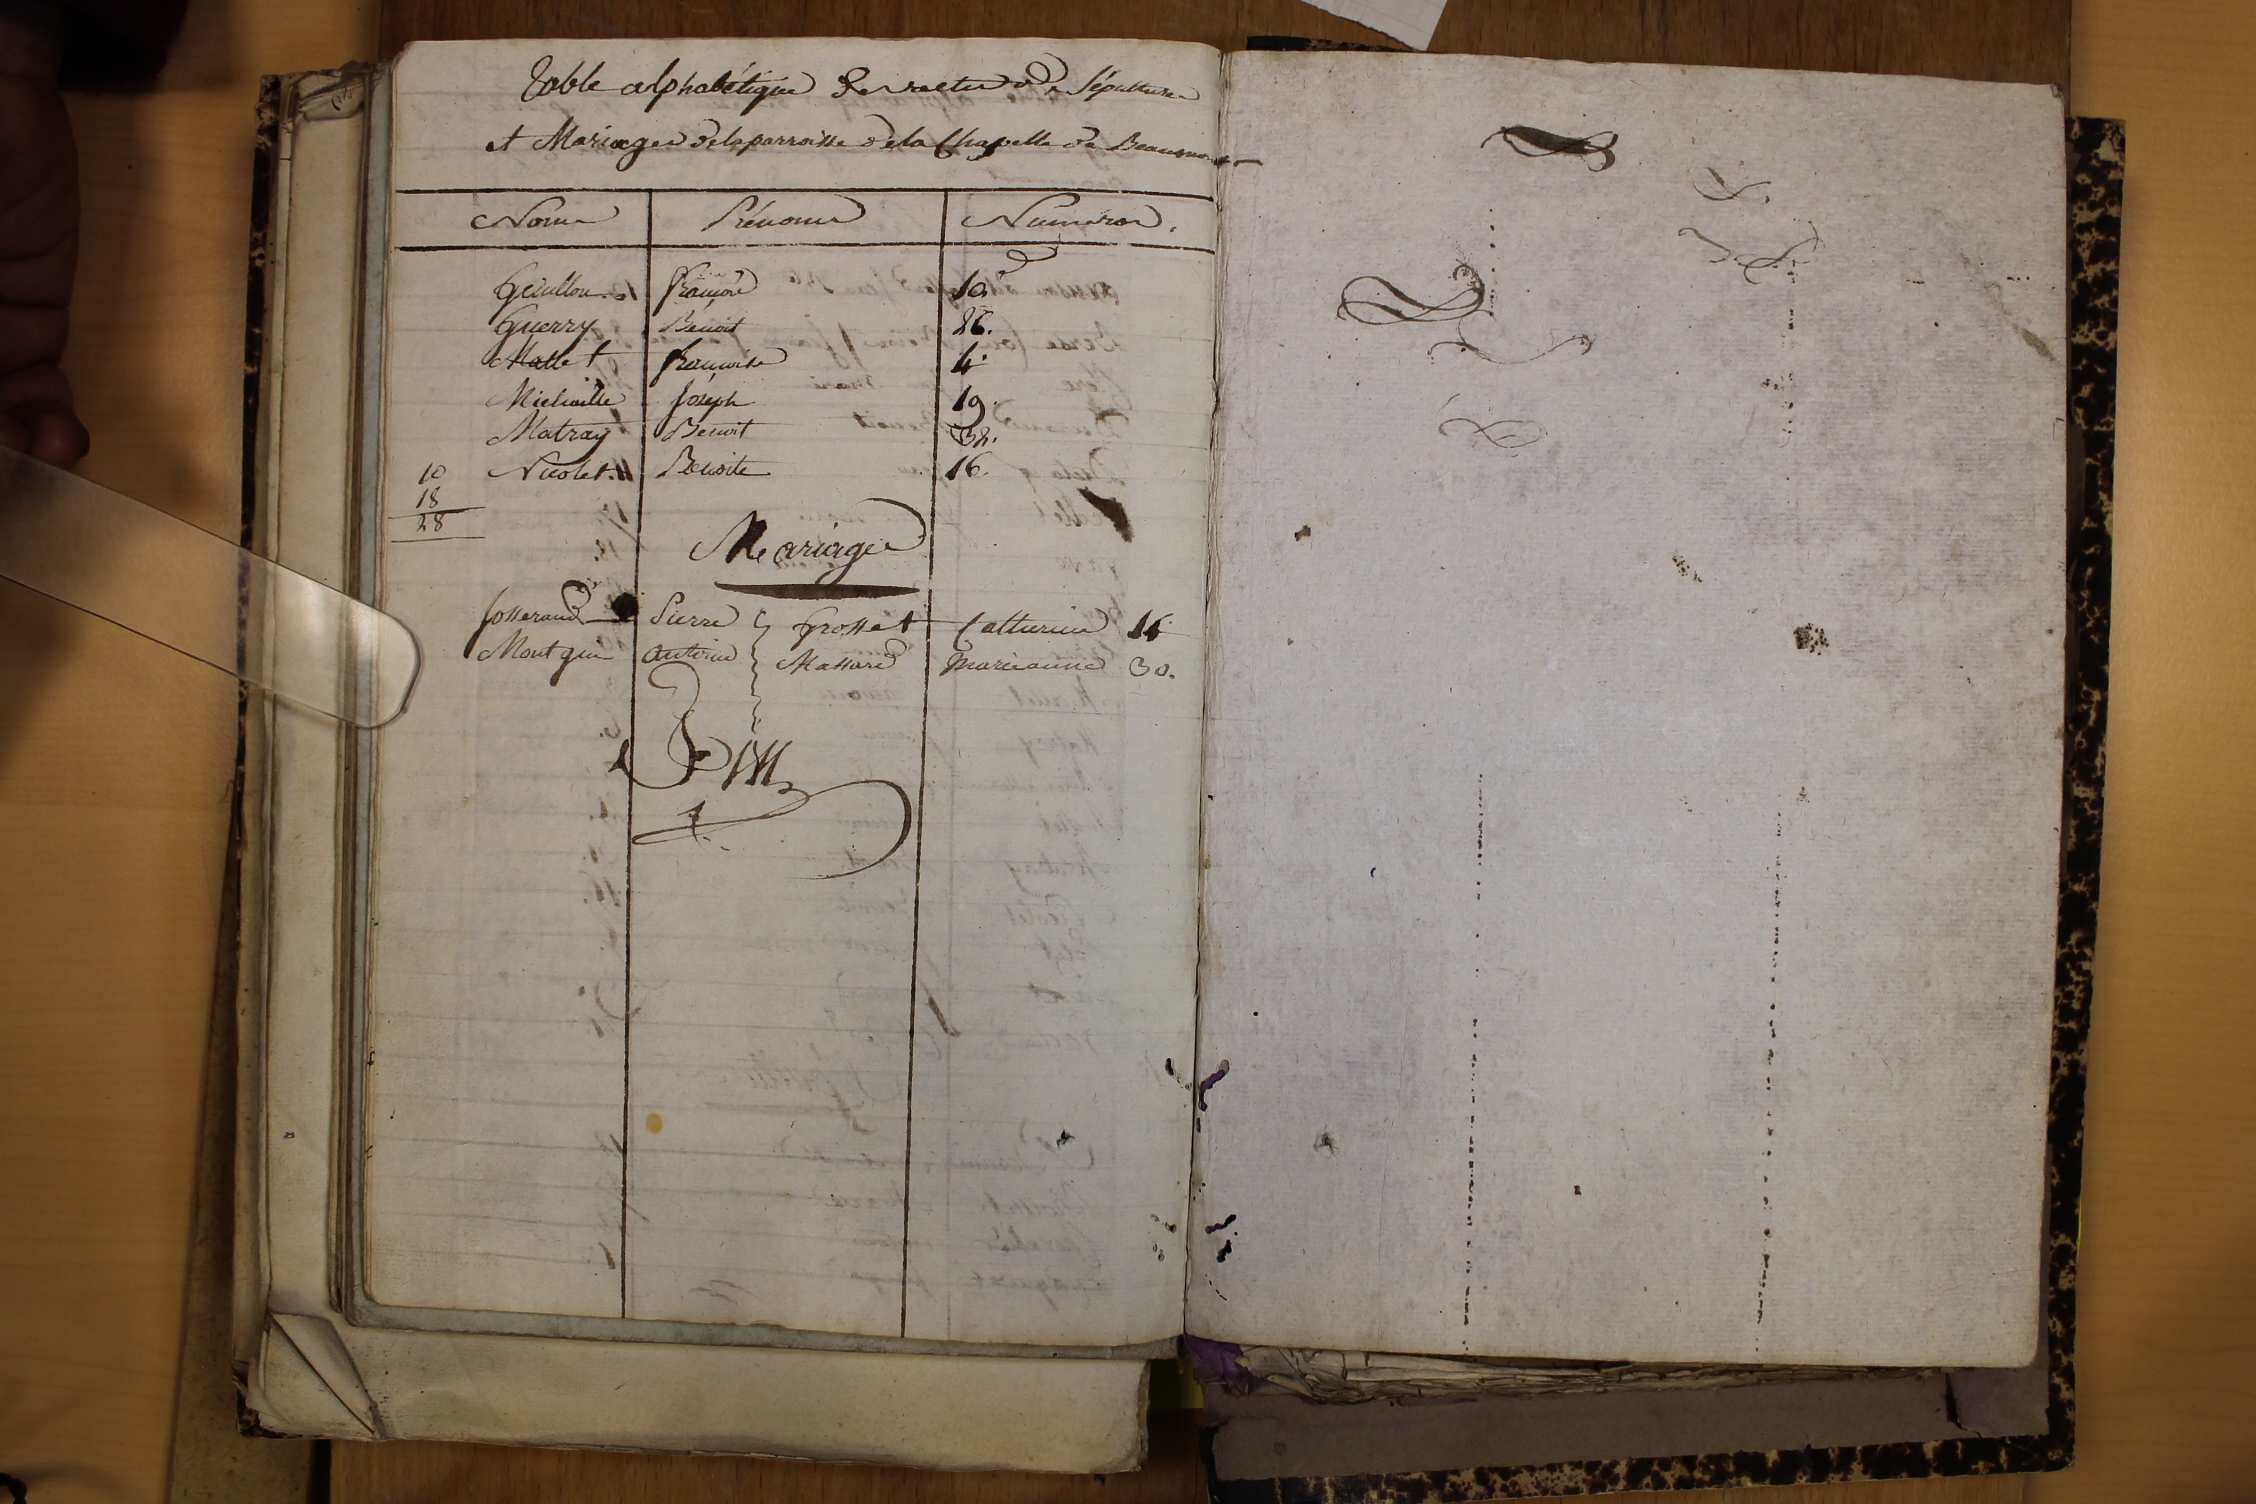 Table alphabétique des actes de Sépultures
et Mariages de la parroisse de la Chapelle de Beaumont
Noms Prénoms Numeros.
Guillon François 10
Guerry Benoit 26.
Mallet françoise 4.
Joseph 19.
Matray Benoit 32.
Nicolet Benoite 16.
10
18
28
Mariages
Josserand Pierre Grosset Catherine 15
Montguin antoine Massard Marieanne 30.